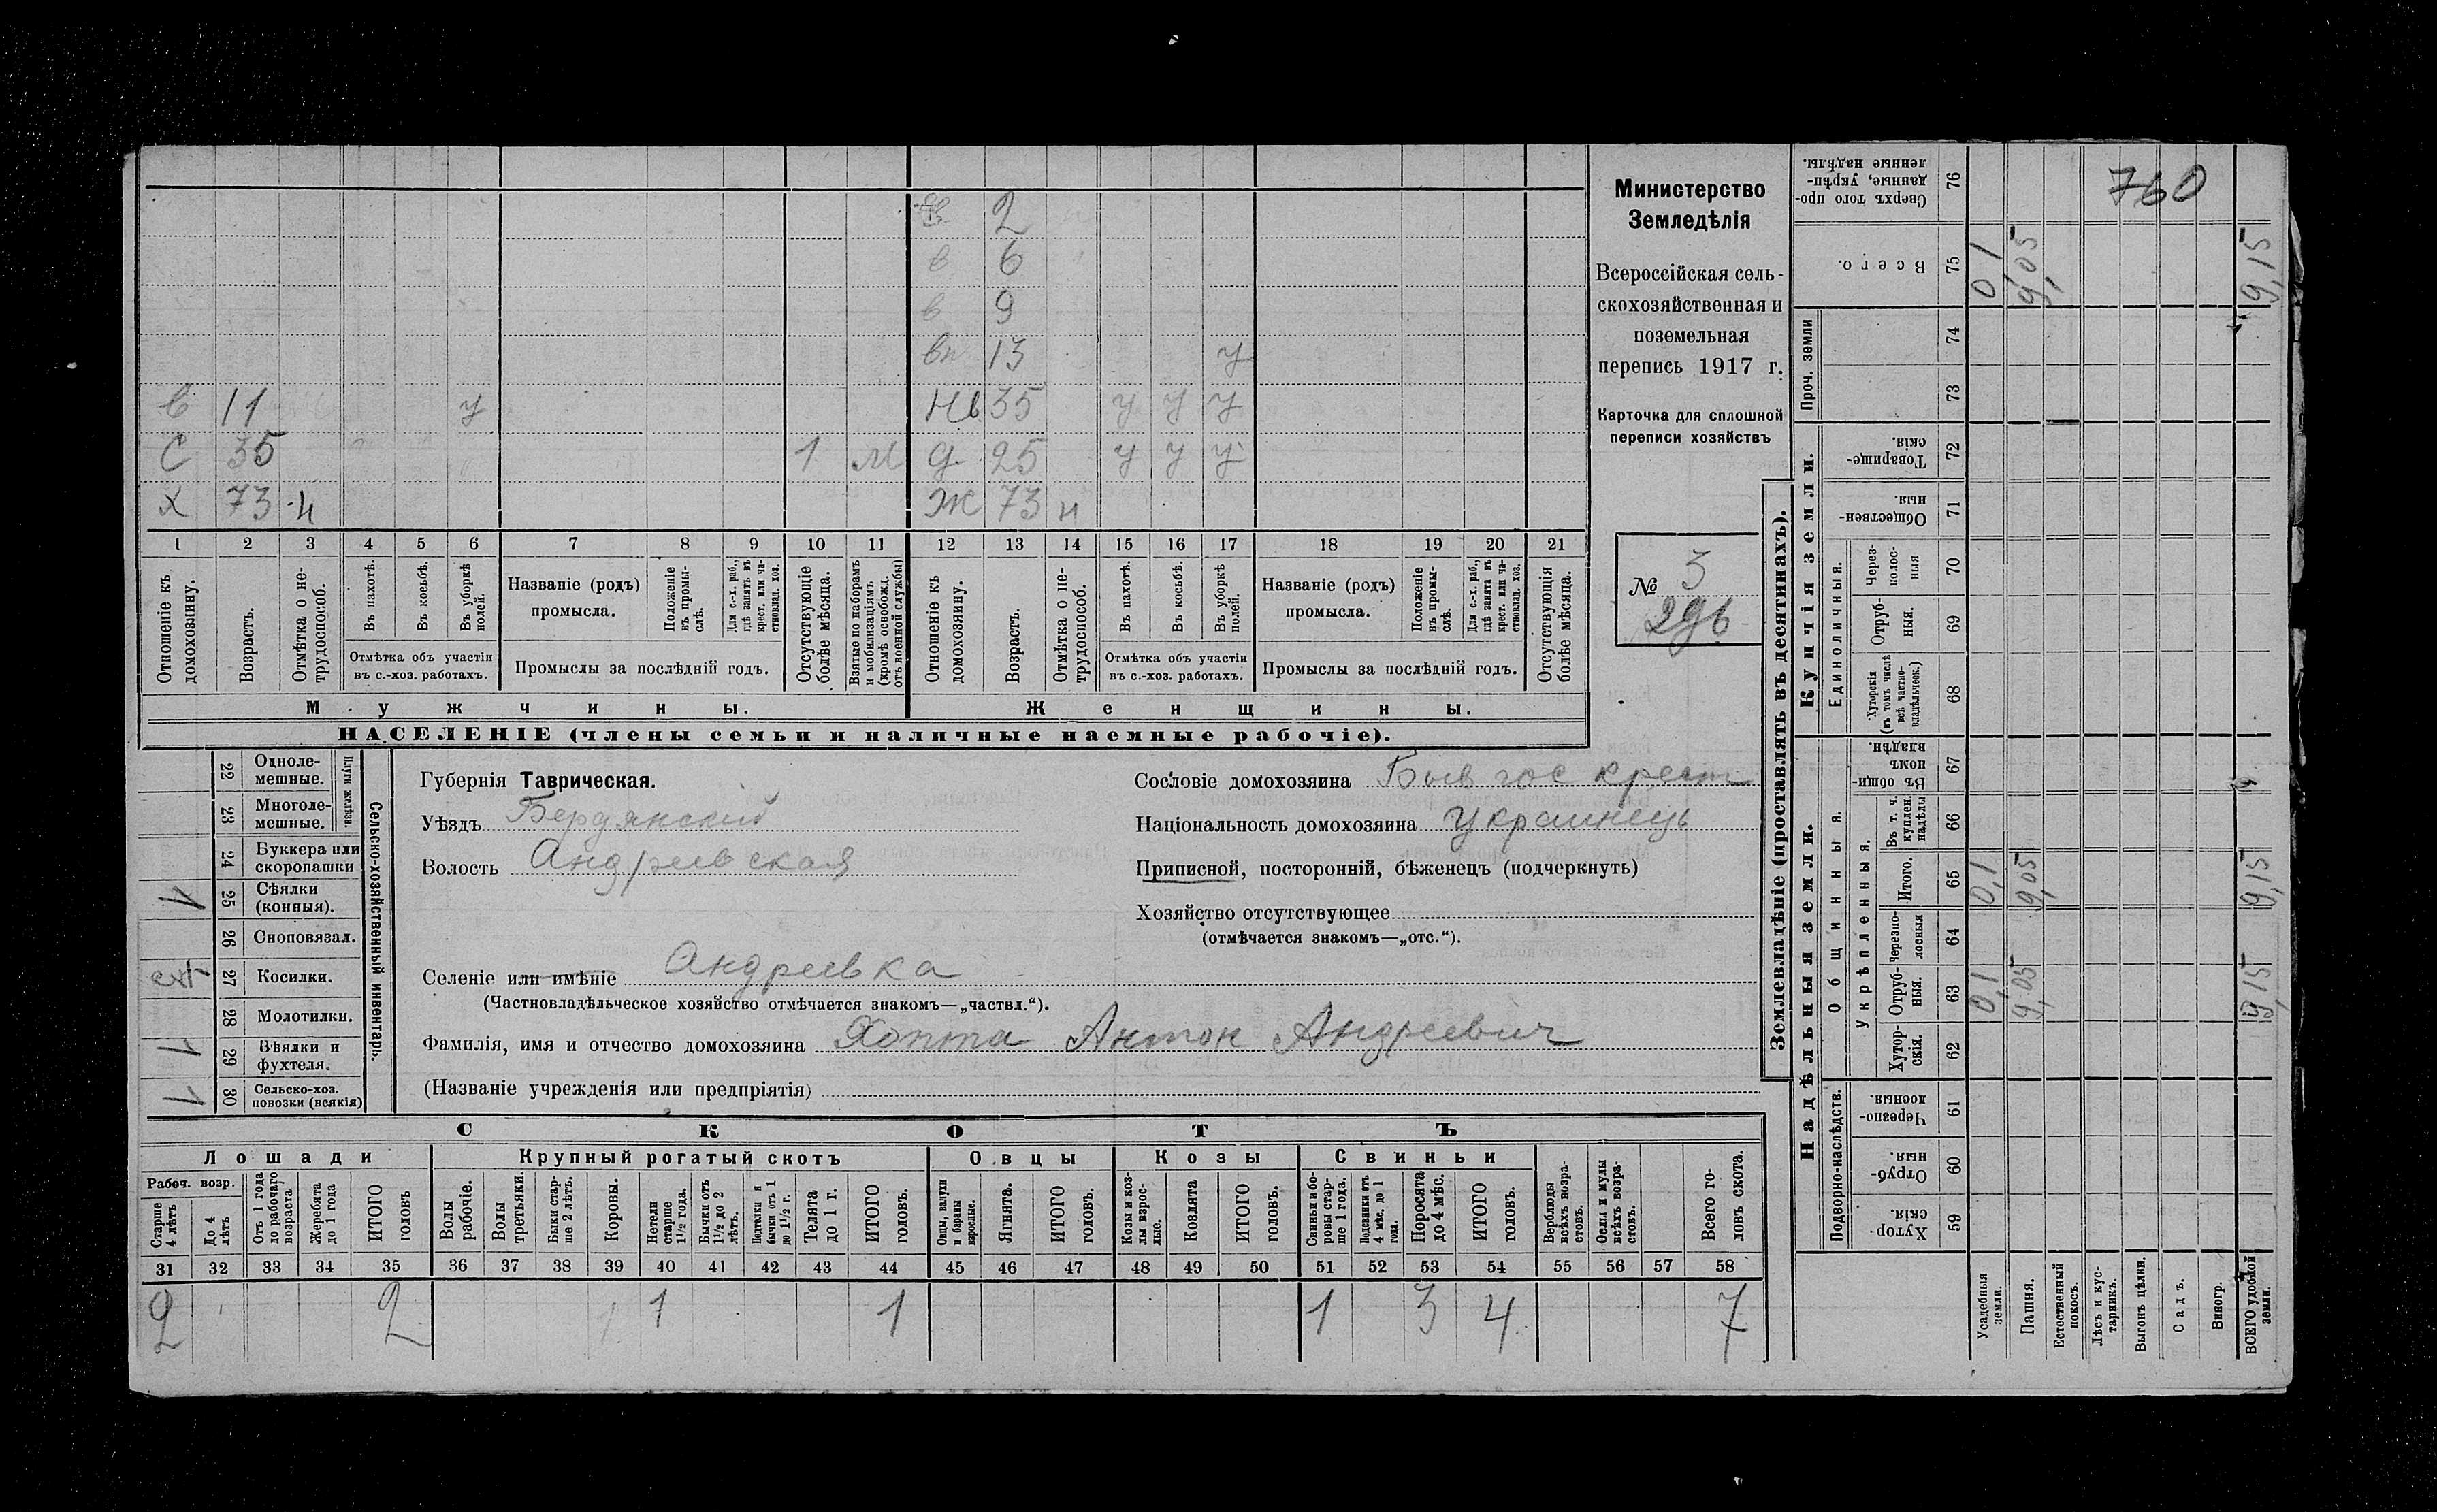 в 2
в 6
в 9
вп 13 у
в 11 у нв 35 у у у
С 35 1 м д 25 у у у
Х 73 н ж 73 н
1 2 3 4 5 6 7 8 9 10 11 12 13 14 15 16 17 18 19 20 21
Отношеніе къ домохозяину.
Возрастъ.
Отмѣтка о не-трудоспособ.
Въ пахотѣ.
Въ косьбѣ.
Въ уборкѣ полей.
Отмѣтка объ участіи
въ с.-хоз. работахъ.
Названіе (родъ)
промысла.
Положеніе въ промы-слѣ.
Для с.-х. раб., гдѣ занятъ въ крест. или ча-стновлад. хоз.
Промыслы за послѣдній годъ.
Отсутствующіе болѣе мѣсяца.
Взятые по наборамъ и мобилизаціямъ (кромѣ освобожд. отъ военной службы)
Отношеніе къ домохозяину.
Возрастъ.
Отмѣтка о не-трудоспособ.
Въ пахотѣ.
Въ косьбѣ.
Въ уборкѣ полей.
Отмѣтка объ участіи
въ с.-хоз. работахъ.
Названіе (родъ)
промысла.
Положеніе въ промы-слѣ.
Для с.-х. раб., гдѣ занята въ крест. или ча-стновлад. хоз.
Промыслы за послѣдній годъ.
Отсутствующія болѣе мѣсяца.
Мужчины. Женщины.
НАСЕЛЕНІЕ (члены семьи и наличные наемные рабочіе).
Министерство
Земледѣлія
Всероссійская сель-
скохозяйственная и
поземельная
перепись 1917 г.
Карточка для сплошной
переписи хозяйствъ
№ 3
296
Сельско-хозяйственный инвентарь.
Плуги желѣзн.
22 Одноле-мешные.
23 Многоле-мешные.
24 Буккера или скоропашки
25 Сѣялки (конныя). 1
26 Сноповязал.
27 Косилки.
28 Молотилки.
29 Вѣялки и фухтеля. 1
30 Сельско-хоз. повозки (всякія) 1
Губернія Таврическая.
Уѣздъ Бердянский
Волость Андреевская
Сословіе домохозяина Быв гос крест
Національность домохозяина Украинець
Приписной, посторонній, бѣженецъ (подчеркнуть)
Хозяйство отсутствующее
(отмѣчается знакомъ—„отс.“).
Селеніе или имѣніе Андреевка
(Частновладѣльческое хозяйство отмѣчается знакомъ—„частвл.“).
Фамилія, имя и отчество домохозяина Хопта Антон Андреевич
(Названіе учрежденія или предпріятія)
СКОТЪ
Лошади Крупный рогатый скотъ Овцы Козы Свиньи
Рабоч. возр.
Старше 4 лѣтъ
До 4 лѣтъ
Отъ 1 года до рабочаго возраста
Жеребята до 1 года
ИТОГО головъ
Волы рабочіе.
Волы третьяки.
Быки стар-ше 2 лѣтъ.
Коровы.
Нетели старше 1½ года.
Бычки отъ 1½ до 2 лѣтъ.
Подтелки и бычки отъ 1 до 1½ г.
Телята до 1 г.
ИТОГО головъ.
Овцы, валухи и бараны взрослые.
Ягнята.
ИТОГО головъ.
Козы и коз-лы взрос-лые.
Козлята
ИТОГО головъ.
Свиньи и бо-ровы стар-ше 1 года.
Подсвинки отъ 4 мѣс. до 1 года.
Поросята до 4 мѣс.
ИТОГО головъ.
Верблюды всѣхъ возра-стовъ.
Ослы и мулы всѣхъ возра-стовъ.
Всего го-ловъ скота.
31 32 33 34 35 36 37 38 39 40 41 42 43 44 45 46 47 48 49 50 51 52 53 54 55 56 57 58
2 2 1 1 1 3 4 7
Землевладѣніе (проставлять въ десятинахъ).
Надѣльныя земли.
Подворно-наслѣдств.
Хутор-скія. 59
Отруб-ныя. 60
Черезпо-лосныя. 61
Общинныя.
Укрѣпленныя.
Хутор-скія. 62
Отруб-ныя. 63 0,1 9,05 9,15
Черезпо-лосныя 64
Итого. 65 0,1 9,05 9,15
Въ т. ч. куплен. надѣлы 66
Въ общи-номъ владѣн. 67
Купчія земли.
Единоличныя.
Хуторскія (въ томъ числѣ всѣ частно-владѣльческ.) 68
Отруб-ныя. 69
Через-полос-ныя 70
Обществен-ныя. 71
Товарище-скія. 72
Проч. земли
73
74
Всего. 75 0,1 9,05 9,15
Сверхъ того про-данные, укрѣп-ленные надѣлы. 76
760
Усадебныя земли.
Пашня.
Естественный покосъ.
Лѣсъ и кус-тарникъ.
Выгонъ цѣлин.
Садъ.
Виногр.
ВСЕГО удобной земли.